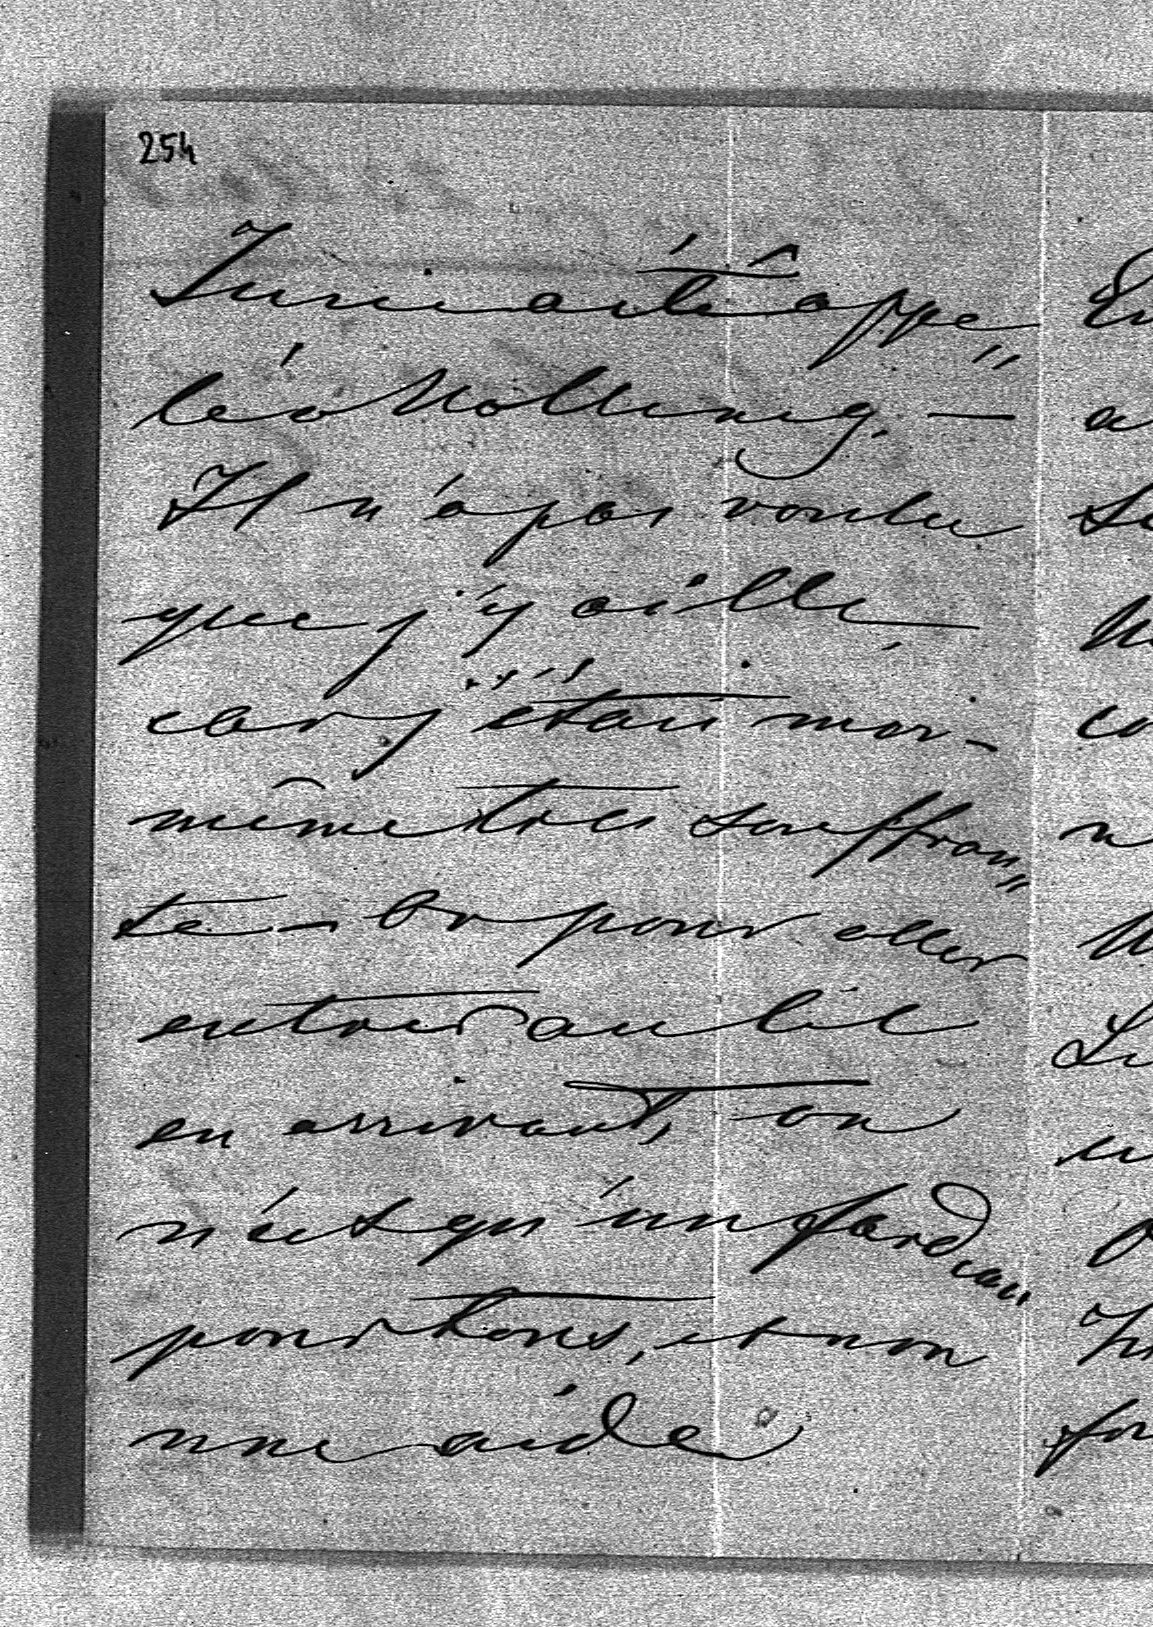 254
Iurie a été appe„
lé à Mölling. —
Il n'a pas voulu
que j'y aille,
car j'étais moi-
même très souffran„
te — Or pour aller
entrer au lit
en arrivant, on
n'est qu'un fardeau
pour tous, et non
une aide